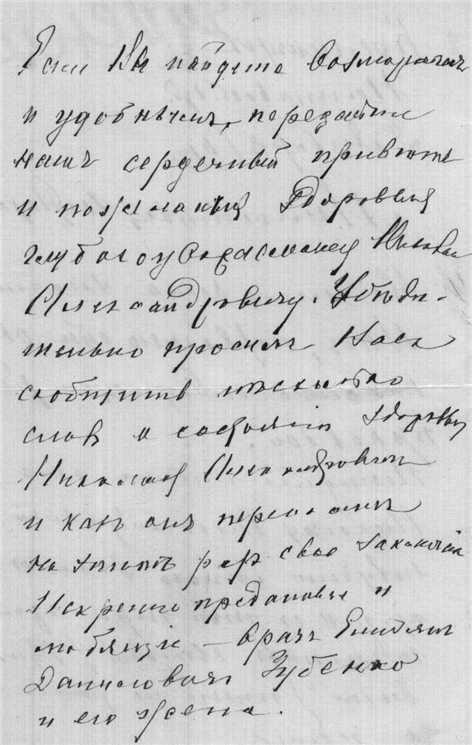 Если Вы найдете возможнымъ
и удобнымъ, передайте
нашъ сердечный привѣтъ
и пожеланія здоровья
глубокоуважаемому
Александровичу. Убѣди-
тельно просимъ Васъ
сообщить нѣсколько
словъ о состояніи здоровья
Николая Александровича
и какъ онъ переноситъ
на этотъ разъ свое
Искренно преданные и
любящіе – врачъ
Даниловичъ Зубенко
и его жена.